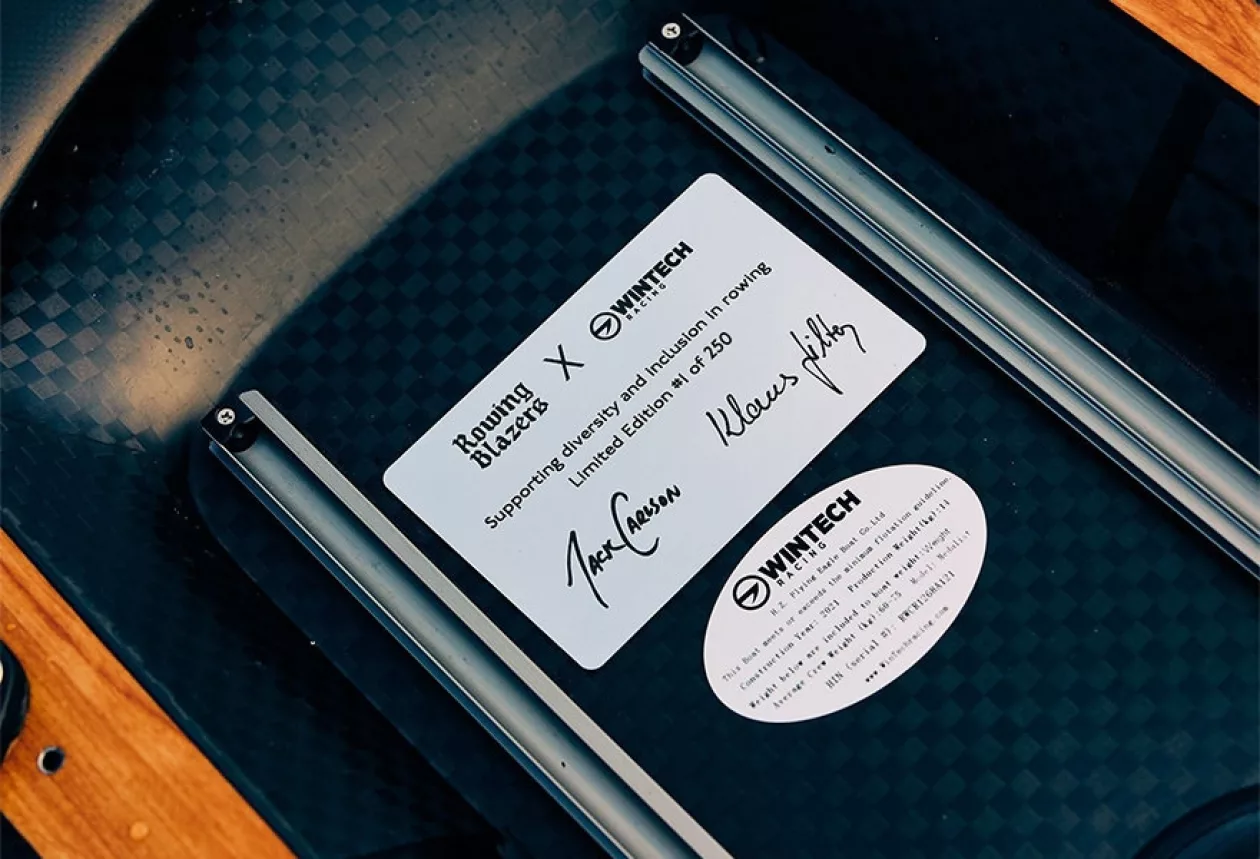 Rowing
Blazers
X
WINTECH
RACING
Supporting diversity and inclusion in rowing
Limited Edition #1 of 250
Jack Carlson
Klaus
WINTECH
RACING
H.Z. Flying Eagle Boat Co.Ltd
This Boat meets or exceeds the minimum flotation guideline.
Construction Year: 2021 Production Weight(kg):14
Weight below are included to boat weight:Weight
Average Crew Weight (kg):60-75 Model: Medalist
HIN (serial #):
www.Wintechracing.com